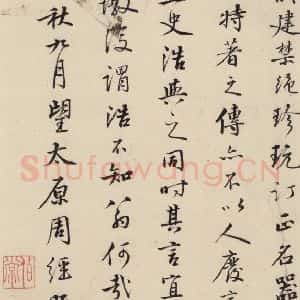 建禁絕珍玩訂正名器
特著之傳亦不以人廢言
史浩與之同時其言宜
後謂浩不知翁何哉
秋九月望太原周經
Shufawang.CN